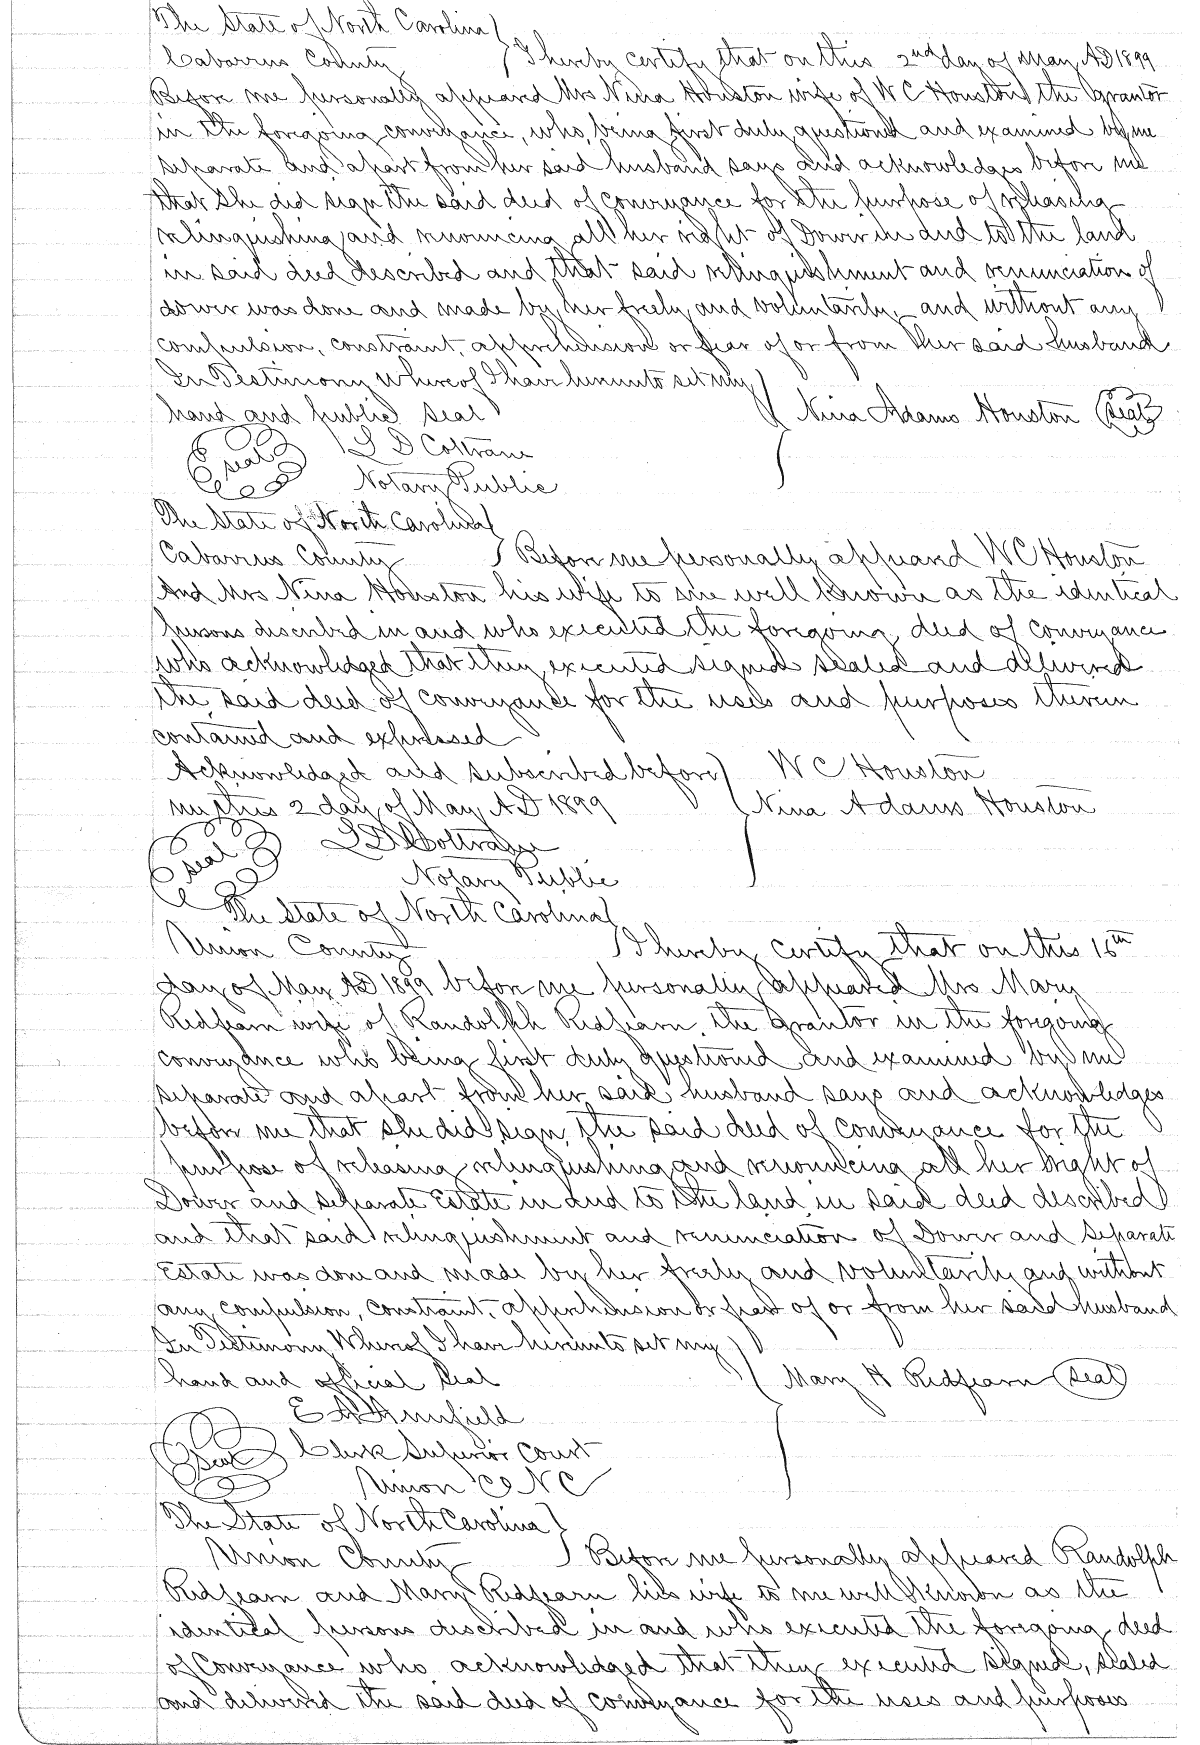 The State of North Carolina }
Cabarrus County } I hereby certify that on this 2nd day of May AD 1899
Before me personally appeared Mrs Nina Houston wife of W C Houston the Grantor
in the foregoing conveyance, who, being first duly questioned and examined by me
separate and apart from her said husband says and acknowledges before me
that she did sign the said deed of conveyance for the purpose of releasing
relinquishing and renouncing all her right of Dower in and to the land
in said deed described and that said relinquishment and renunciation of
dower was done and made by her freely and voluntarily, and without any
compulsion, constraint, apprehension or fear of or from her said husband
In Testimony Whereof I have hereunto set my
hand and public seal } Nina Adams Houston (seal)
(seal) L D Coltrane
Notary Public
The State of North Carolina }
Cabarrus County } Before me personally appeared W C Houston
And Mrs Nina Houston his wife to me well known as the identical
persons described in and who executed the foregoing deed of conveyance
who acknowledged that they executed signed sealed and delivered
the said deed of conveyance for the uses and purposes therein
contained and expressed
Acknowledged and subscribed before } W C Houston
me this 2 day of May AD 1899 } Nina Adams Houston
(seal) L D Coltrane
Notary Public
The State of North Carolina }
Union County } I hereby certify that on this 16th
day of May AD 1899 before me personally appeared Mrs Mary
Redfearn wife of Randolph Redfearn, the grantor in the foregoing
conveyance who being first duly questioned and examined by me
separate and apart from her said husband says and acknowledges
before me that she did sign the said deed of conveyance for the
purpose of releasing relinquishing and renouncing all her right of
Dower and separate Estate in and to the land in said deed described
and that said relinquishment and renunciation of Dower and Separate
Estate was done and made by her freely and voluntarily and without
any compulsion, constraint, apprehension or fear of or from her said husband
In Testimony Whereof I have hereunto set my
hand and official Seal } Mary H Redfearn (seal)
E A Armfield
(seal) Clerk Superior Court
Union Co N C
The State of North Carolina }
Union County } Before me personally appeared Randolph
Redfearn and Mary Redfearn his wife to me well known as the
identical persons described in and who executed the foregoing deed
of Conveyance who acknowledged that they executed signed, sealed
and delivered the said deed of conveyance for the uses and purposes